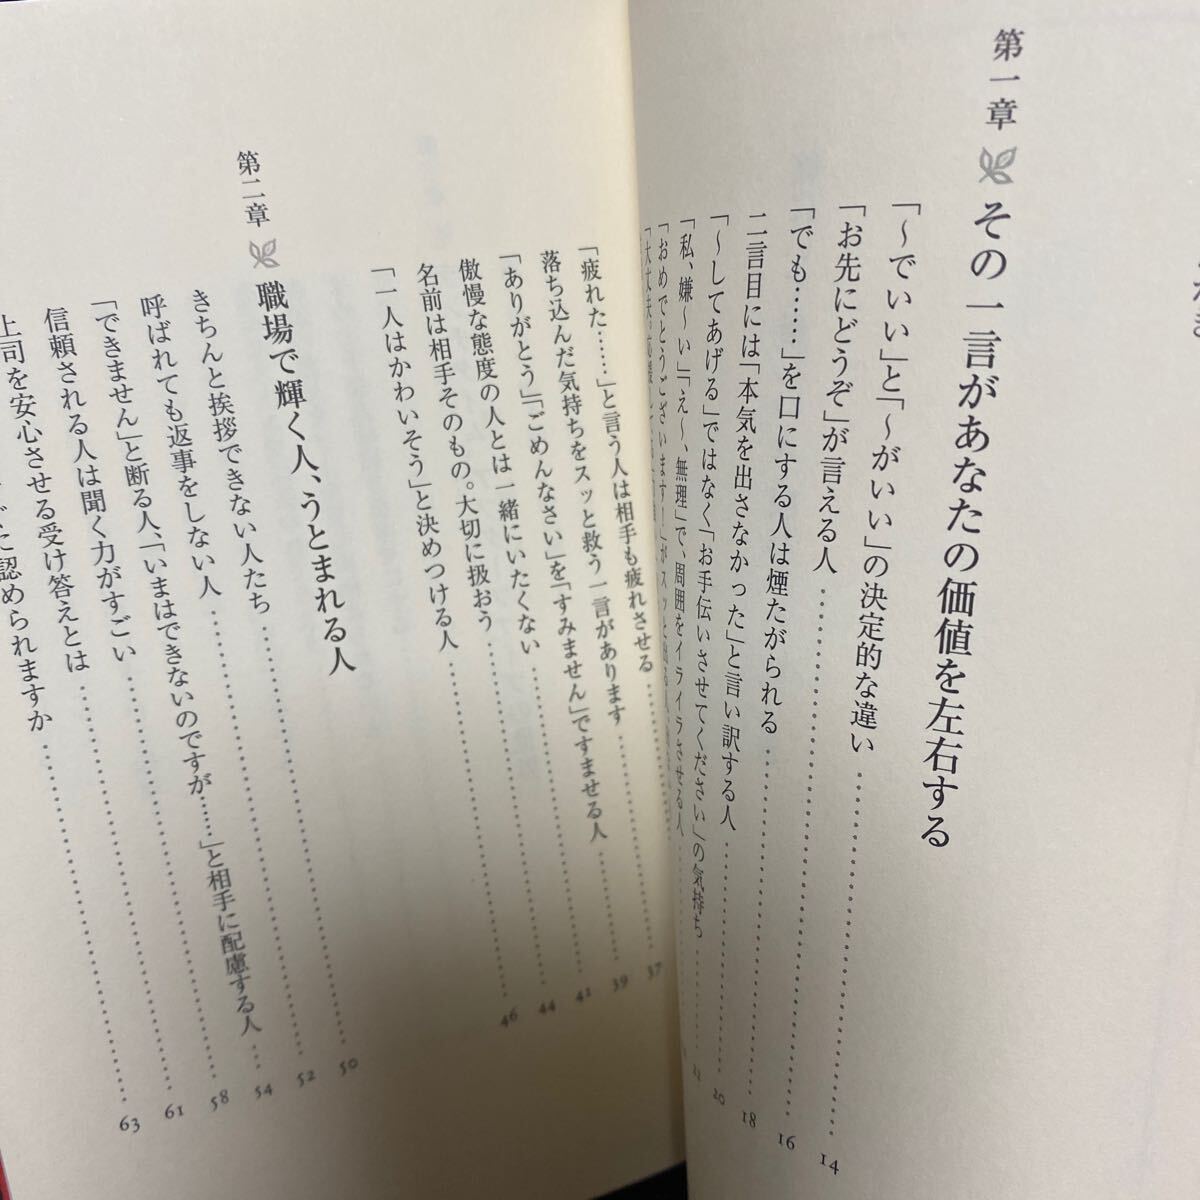 第一章 その一言があなたの価値を左右する
「〜でいい」と「〜がいい」の決定的な違い …… 14
「お先にどうぞ」が言える人 …… 16
「でも……」を口にする人は煙たがられる …… 18
二言目には「本気を出さなかった」と言い訳する人 …… 20
「〜してあげる」ではなく「お手伝いさせてください」の気持ち ……
「私、嫌〜い」「え〜、無理」で、周囲をイライラさせる人 ……
「おめでとうございます！」がスッと出る人
「大丈夫。応援
「疲れた……」と言う人は相手も疲れさせる ……
落ち込んだ気持ちをスッと救う一言があります …… 37
「ありがとう」「ごめんなさい」を「すみません」ですませる人 …… 39
傲慢な態度の人とは一緒にいたくない …… 41
名前は相手そのもの。大切に扱おう …… 44
「一人はかわいそう」と決めつける人 …… 46
第二章 職場で輝く人、うとまれる人
きちんと挨拶できない人たち …… 50
呼ばれても返事をしない人 …… 52
「できません」と断る人、「いまはできないのですが……」と相手に配慮する人 … 54
信頼される人は聞く力がすごい …… 58
上司を安心させる受け答えとは …… 61
に認められますか …… 63